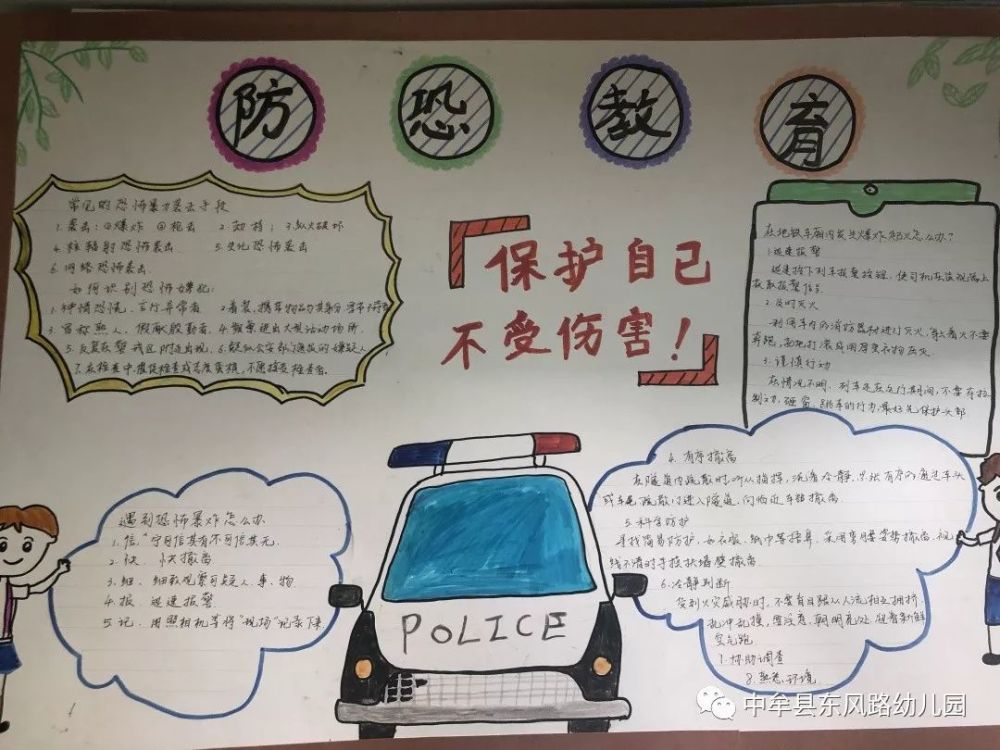 防恐教育
常见的恐怖暴力袭击手段
1.袭击:①爆炸 ②枪击 2.劫持; 3.纵火破坏
4.核辐射恐怖袭击 5.生化恐怖袭击
6.网络恐怖袭击.
如何识别恐怖嫌犯:
1.神情恐慌、言行异常者 2.着装、携带物品与其身份
3.冒称熟人、假献殷勤者. 4.频繁进出大型活动场所.
5.反复在警戒区附近出现. 6.疑似公安部门通报的嫌疑人
7.在检查中,催促检查或态度蛮横、不愿接受检查者.
保护自己
不受伤害!
在地铁车厢内发生爆炸起火怎么办?
1.迅速报警
迅速按下列车报警按钮,使司机在监视器上
获取报警信号
2.及时灭火
利用车内消防器材进行灭火,身上着火不要
奔跑,就地打滚或用厚重衣物压灭.
3.谨慎行动
在情况不明、列车还在运行期间,不要有拉
制动、砸窗、跳车的行为,最好先保护头部
4.有序撤离
在隧道内疏散时听从指挥,沉着冷静、有序的通过车头
或车尾疏散门进入隧道,向临近车站撤离.
5.科学防护
寻找简易防护,如衣服、纸巾等捂鼻、采用弯腰姿势撤离、视
线不清时手摸扶墙壁撤离
6.冷静判断
受到火灾威胁时,不要盲目跟从人流相互拥挤、
乱冲乱摸,要注意朝明亮处,迎着新鲜
空气跑
7.协助调查
8.熟悉环境
遇到恐怖爆炸怎么办
1.信.“宁可信其有不可信其无.
2.快. 快撤离
3.细. 细致观察可疑人、事、物
4.报. 迅速报警
5.记. 用照相机等将“现场”记录下来
POLICE
中牟县东风路幼儿园